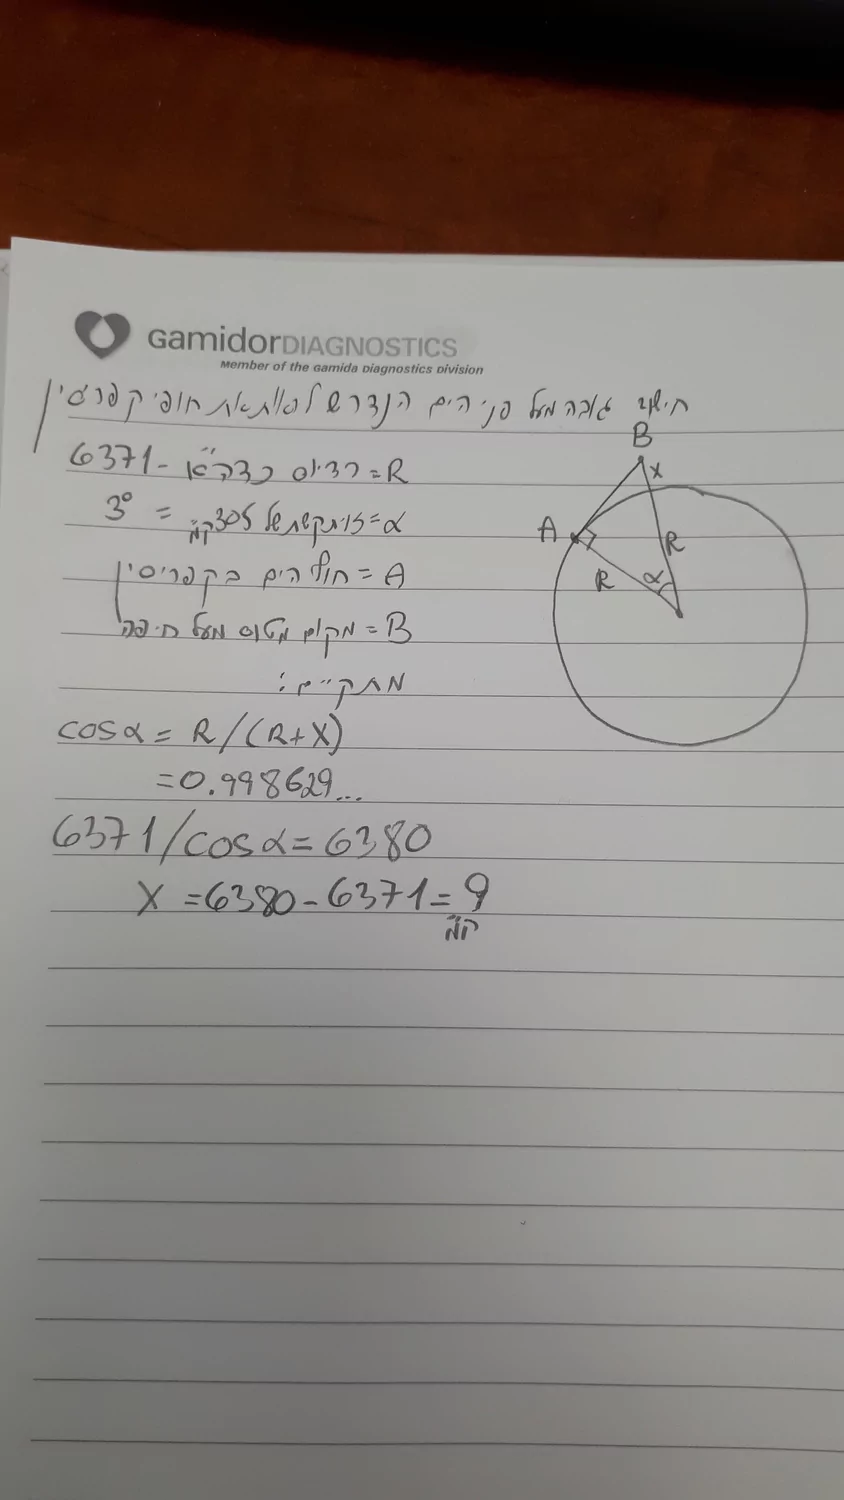 GamidorDIAGNOSTICS
Member of the Gamida Diagnostics Division
חישוב גובה מעל פני הים הנדרש לראות את חופי קפריסין
B
x
R = רדיוס כדה"א - 6371
α = זוית קשת של 305 ק"מ = 3°
A
R
R
α
A = חוף הים בקפריסין
B = מקום מטוס מעל חיפה
מתקיים:
cosα = R/(R+X)
=0.998629...
6371/cosα = 6380
X = 6380 - 6371 = 9
ק"מ